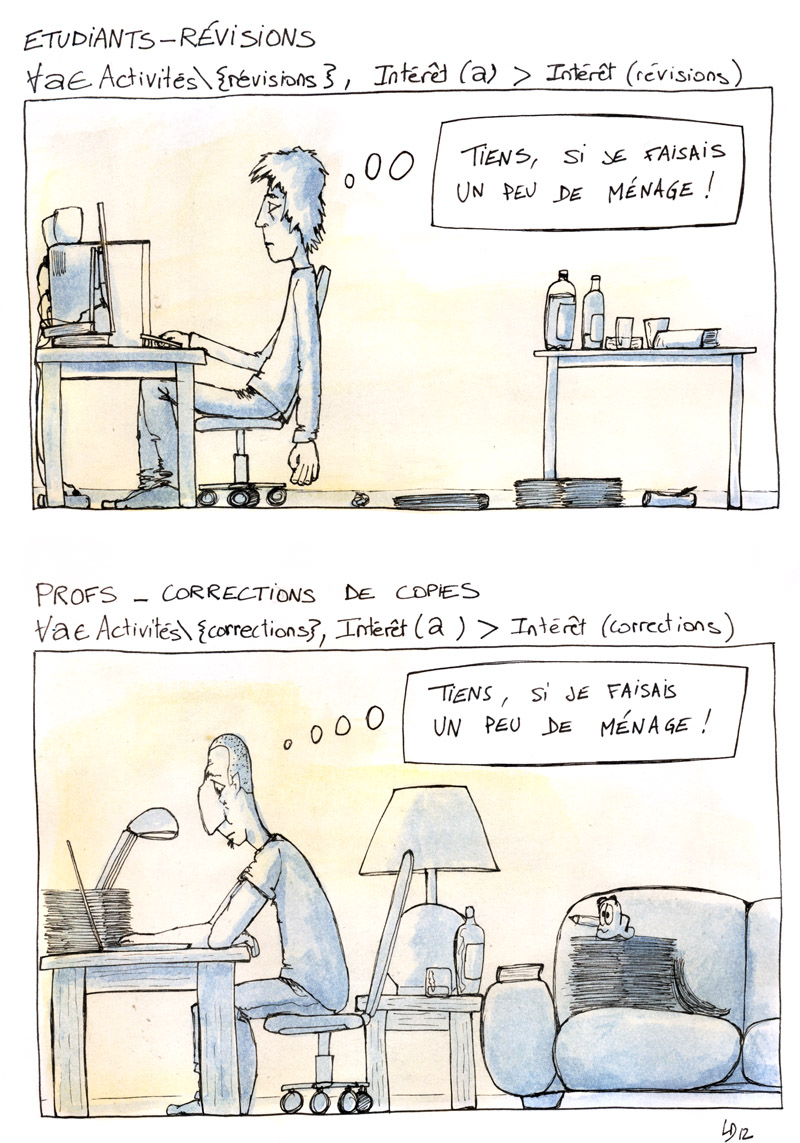 ETUDIANTS - RÉVISIONS
∀a∈ Activités\{révisions}, Intérêt (a) > Intérêt (révisions)
TIENS, SI JE FAISAIS
UN PEU DE MÉNAGE !
PROFS - CORRECTIONS DE COPIES
∀a∈ Activités\{corrections}, Intérêt (a) > Intérêt (corrections)
TIENS, SI JE FAISAIS
UN PEU DE MÉNAGE !
LD12